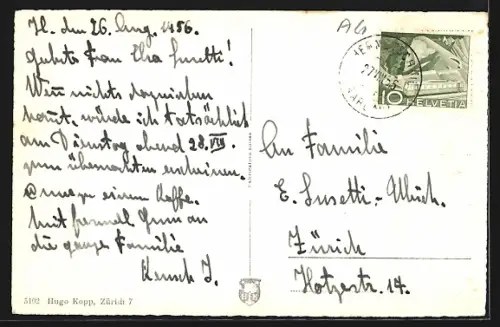 H. den 26. Aug. 1956.
Liebste Frau Elsa Susetti!
Wenn nichts dazwischen
kommt, würde ich tatsächlich
am Dienstag abend 28. VIII
zum übernachten erscheinen.
einem Kaffe.
Mit freundl. Gruss an
die ganze Familie
10
HELVETIA
An Familie
E. Susetti-Ulrich.
Zürich
Hotzestr. 14.
5102 Hugo Kopp, Zürich 7